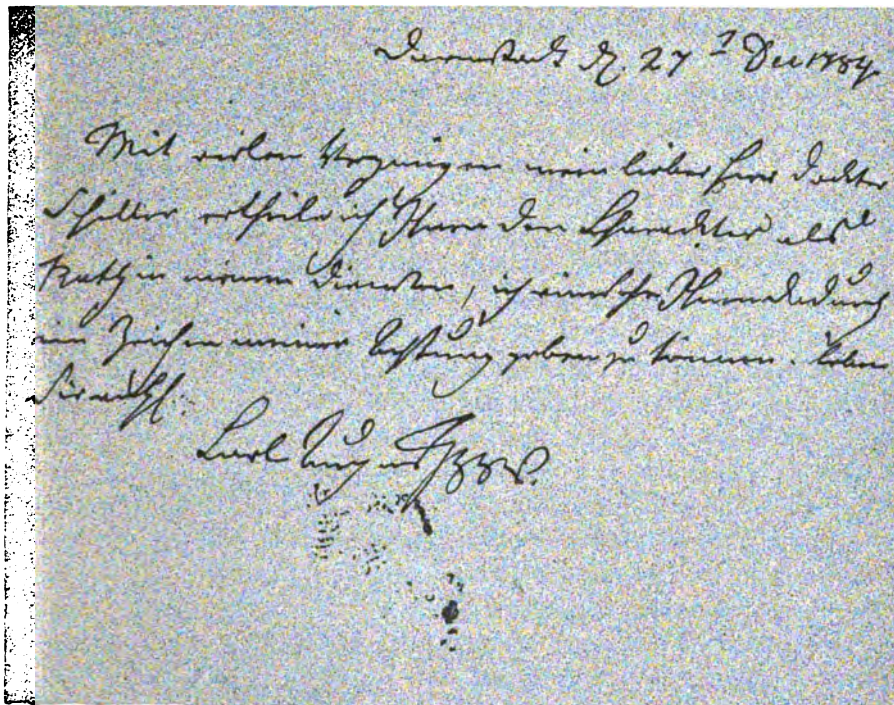 Darmstadt d. 27 Dec 1784.
Mit vielen Vergnügen mein lieber Herr Docktor
Schiller ertheile ich Ihnen den Charackter als
Rath in meinen Diensten, ich wünsche Ihnen dadurch
ein Zeichen meiner Achtung geben zu können. Leben
Sie wohl.
Carl August HzSW.